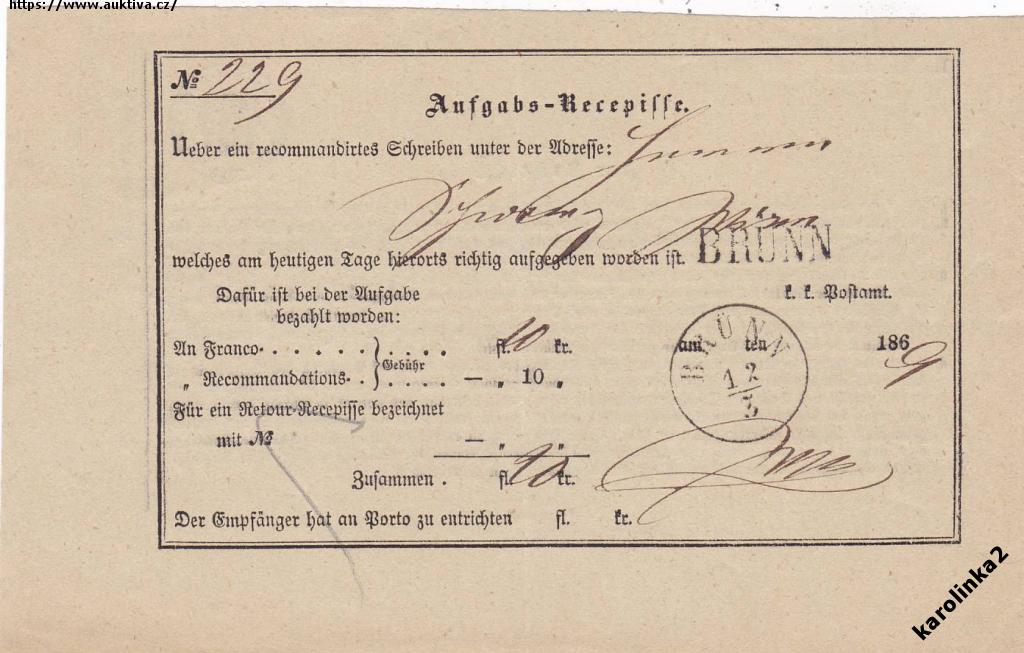 https://www.auktiva.cz/
No 229
Aufgabs-Recepisse.
Ueber ein recommandirtes Schreiben unter der Adresse:
Wien
welches am heutigen Tage hierorts richtig aufgegeben worden ist. BRÜNN
Dafür ist bei der Aufgabe k. k. Postamt.
bezahlt worden:
An Franco. . . . . . . . . . fl. 10 kr. am ten 1869
BRÜNN
12/3
„ Recommandations. . Gebühr . . . . — „ 10 „
Für ein Retour-Recepisse bezeichnet
mit No — „ „
Zusammen . fl. kr.
Der Empfänger hat an Porto zu entrichten fl. kr.
karolinka2